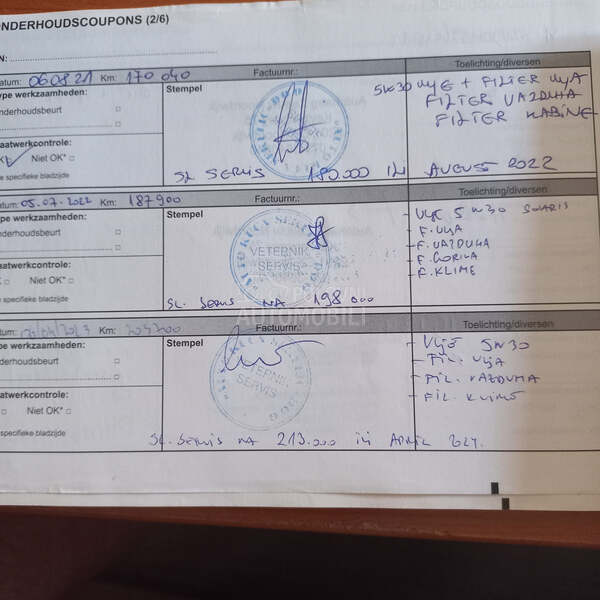 ONDERHOUDSCOUPONS (2/6)
N:
Toelichting/diversen
atum: 06 08 21 Km: 170 040 Factuurnr.:
ype werkzaamheden: Stempel
nderhoudsbeurt
5W30 ULJE + FILTER ULJA
FILTER VAZDUHA
FILTER KABINE
aatwerkcontrole:
K Niet OK*
e specifieke bladzijde
SL SERVIS 180.000 ILI AUGUST 2022
atum: 05.07.2022 Km: 187900 Factuurnr.: Toelichting/diversen
ype werkzaamheden: Stempel
nderhoudsbeurt
AUTO KUĆA
VETERNIK
SERVIS
ULJE 5W30
F. ULJA
F. VAZDUHA
F. GORIVA
F. KLIME
aatwerkcontrole:
K Niet OK*
e specifieke bladzijde
SL. SERVIS NA 198 000
AUTOMOBILI
atum: Km: Factuurnr.: Toelichting/diversen
pe werkzaamheden: Stempel
nderhoudsbeurt
VETERNIK
SERVIS
ULJE 5W30
FIL. ULJA
FIL. VAZDUHA
FIL. KLIME
aatwerkcontrole:
Niet OK*
specifieke bladzijde
SL. SERVIS NA 213.000 ILI APRIL 2024.